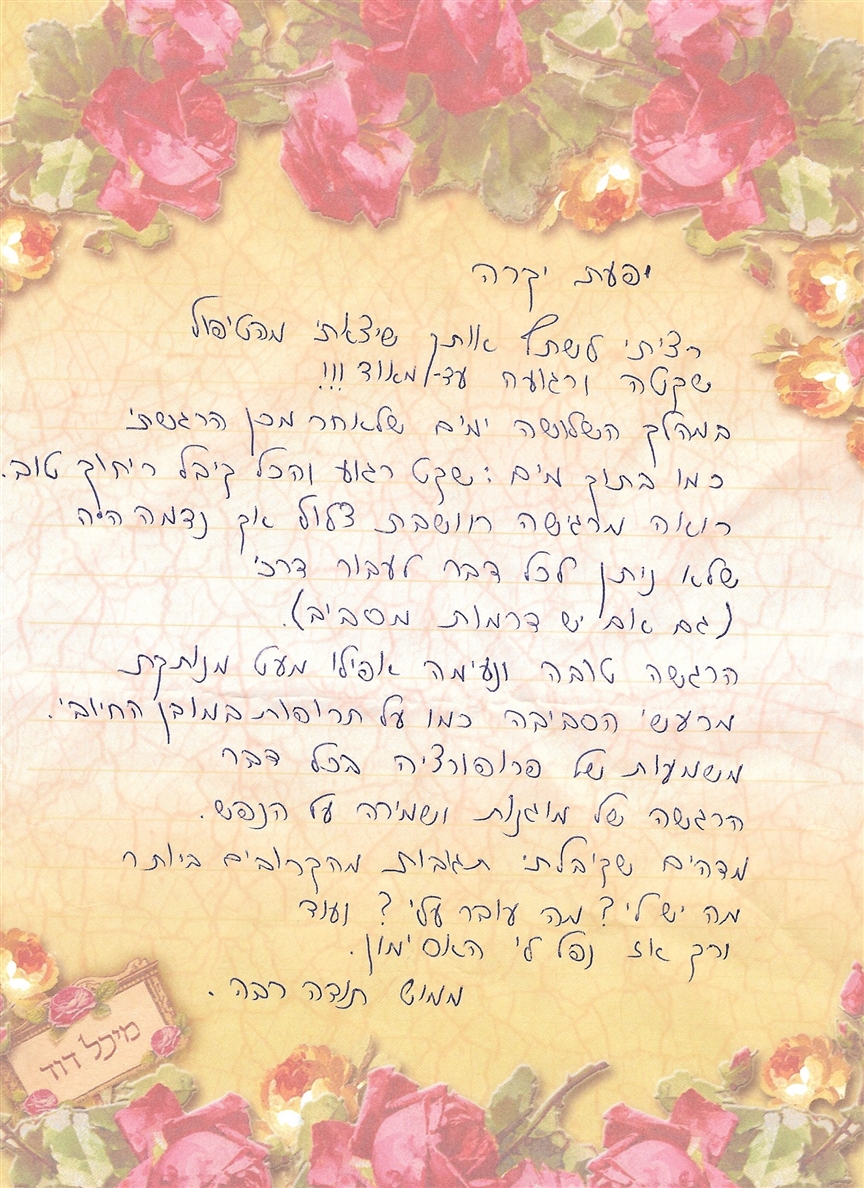 יפעת יקרה
רציתי לשתף אותך שיצאתי מהטיפול
שקטה ורגועה עד-מאוד!!!
במהלך השלושה ימים שלאחר מכן הרגשתי
כמו בתוך מים: שקט רגוע והכל קיבל ריחוק טוב.
רואה מרגישה חושבת צלול אך נדמה היה
שלא ניתן לכל דבר לעבור דרכי
(גם אם יש דרמות מסביב).
הרגשה טובה ונעימה אפילו מעט מנותקת
מרעשי הסביבה כמו על תרופות במובן החיובי.
משמעות של פרופורציה בכל דבר
הרגשה של מוגנות ושמירה על הנפש.
מדהים שקיבלתי תגובות מהקרובים ביותר
מה יש לי? מה עובר עלי? ועוד
ורק אז נפל לי האסימון.
ממש תודה רבה.
מיכל דוד